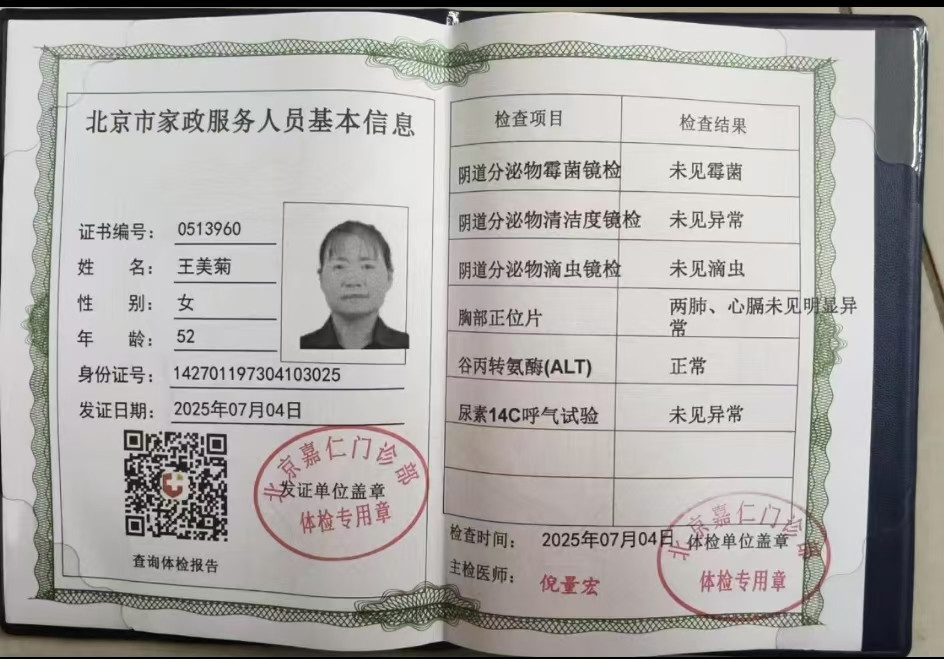 北京市家政服务人员基本信息
证书编号： 0513960
姓 名： 王美菊
性 别： 女
年 龄： 52
身份证号： 142701197304103025
发证日期： 2025年07月04日
北京嘉仁门诊部
发证单位盖章
体检专用章
查询体检报告
检查项目 检查结果
阴道分泌物霉菌镜检 未见霉菌
阴道分泌物清洁度镜检 未见异常
阴道分泌物滴虫镜检 未见滴虫
胸部正位片 两肺、心膈未见明显异
常
谷丙转氨酶(ALT) 正常
尿素14C呼气试验 未见异常
检查时间： 2025年07月04日
北京嘉仁门诊部
体检单位盖章
主检医师： 倪量宏
体检专用章